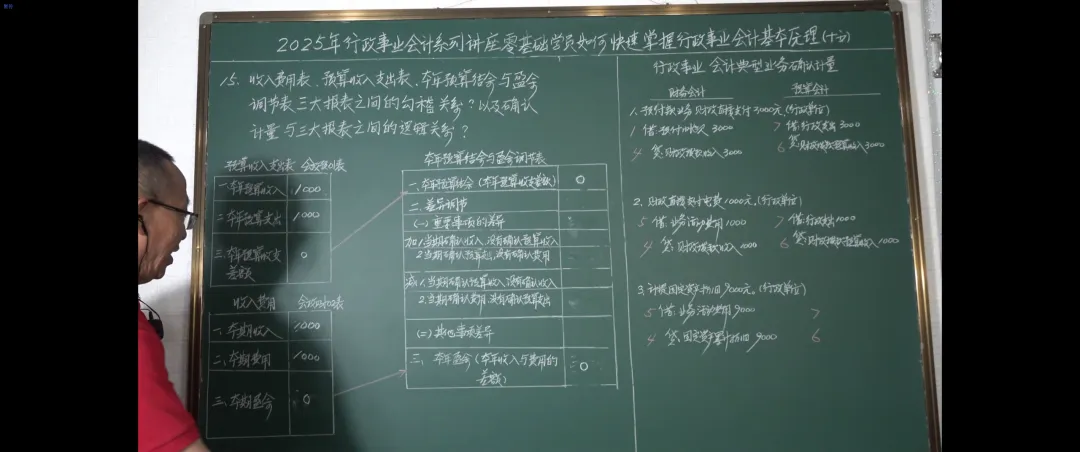 2025年行政事业会计系列讲座零基础学员如何快速掌握行政事业会计基本原理(十六)
15. 收入费用表、预算收入支出表、本年预算结余与盈余
调节表三大报表之间的勾稽关系?以及确认
计量与三大报表之间的逻辑关系?
预算收入支出表 会预01表
一.本年预算收入 1000
二.本年预算支出 1000
三.本年预算收支差额 0
收入费用 表
一.本期收入 1000
二.本期费用 1000
三.本期盈余 0
本年预算结余与盈余调节表
一.本年预算结余(本年预算收支差额) 0
二.差异调节
(一)重要事项的差异
加:1.当期确认收入没有确认预算收入
2.当期确认预算支出没有确认费用
减:1.当期确认预算收入没有确认收入
2.当期确认费用没有确认预算支出
(二)其他事项差异
三.本年盈余(本年收入与费用的差额) 0
行政事业会计典型业务确认计量
财务会计 预算会计
1.预付款业务,财政直接支付3000元.(行政单位)
1 借:预付账款 3000 7 借:行政支出 3000
4 贷:财政拨款收入 3000 6 贷:财政拨款预算收入 3000
2.财政直接支付电费1000元.(行政单位)
5 借:业务活动费用 1000 7 借:行政支出 1000
4 贷:财政拨款收入 1000 6 贷:财政拨款预算收入 1000
3.计提固定资产折旧9000元.(行政单位)
5 借:业务活动费用 9000 7
4 贷:固定资产累计折旧 9000 6